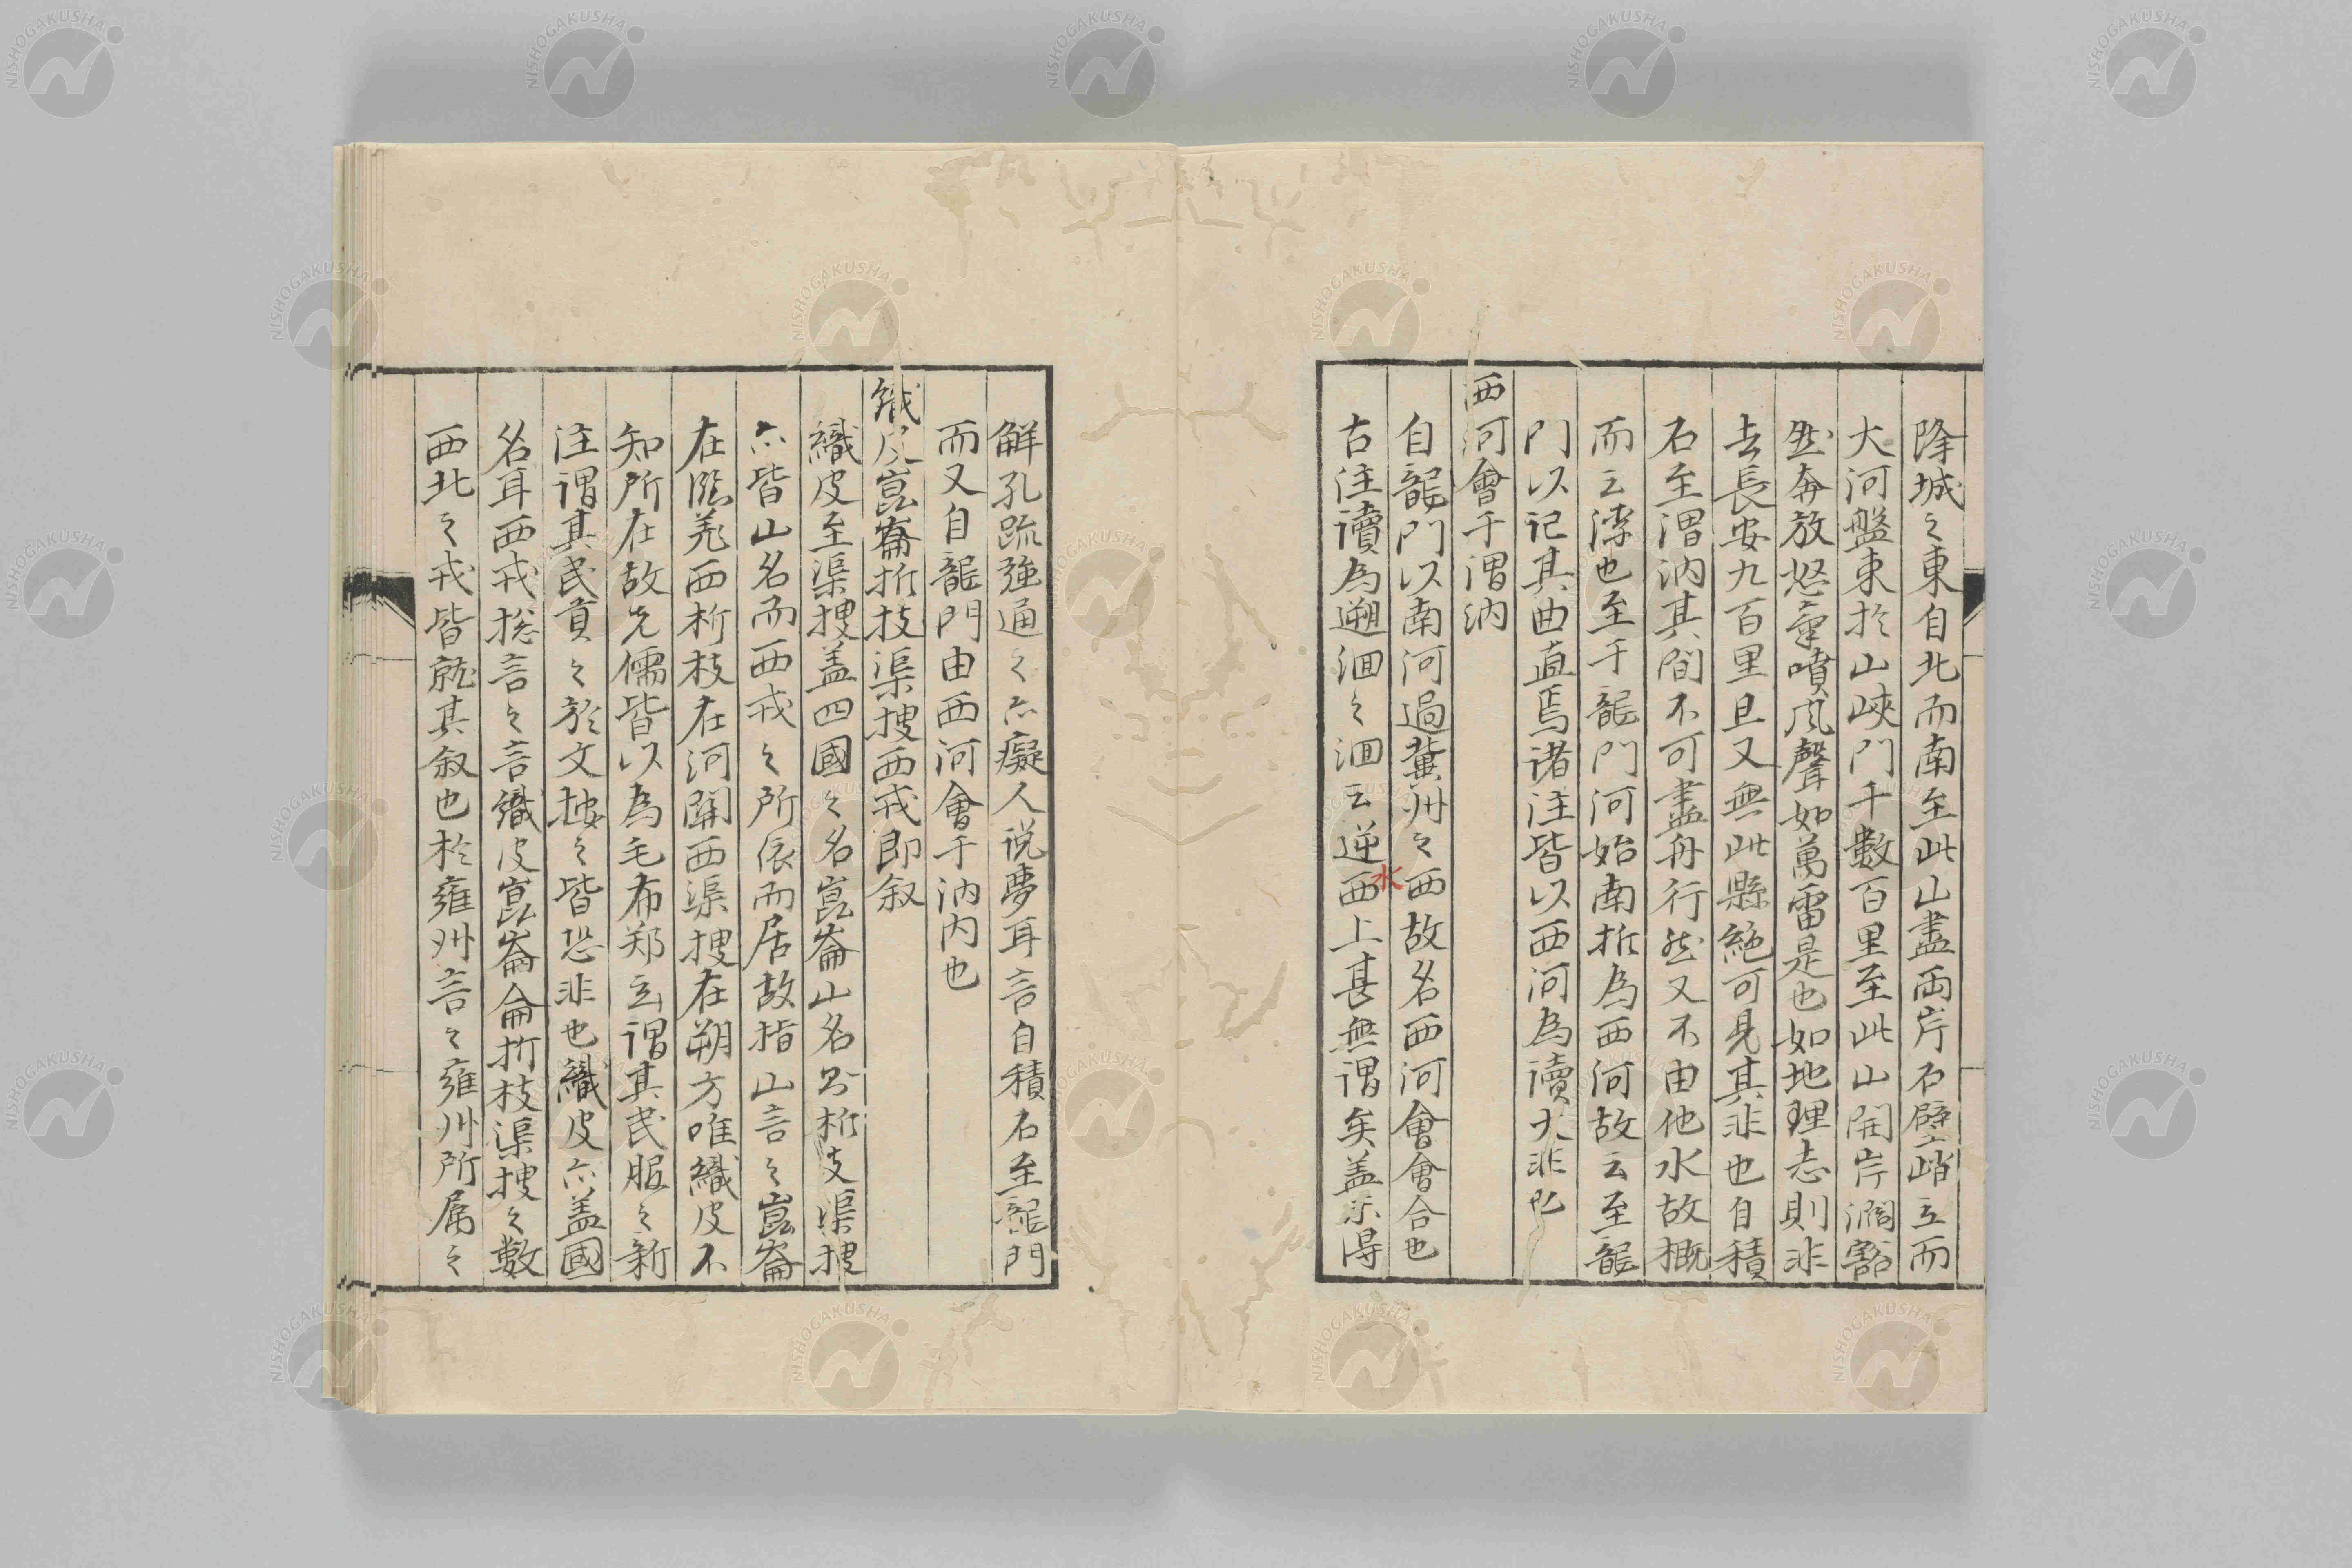 降城之東自北而南至此山盡兩岸石壁峭立而
大河盤束於山峽門千數百里至此山開岸濶豁
然奔放怒氣噴風聲如萬雷是也如地理志則非
去長安九百里且又無此縣絕可見其非也自積
石至渭汭其間不可盡舟行然又不由他水故概
而云浮也至于龍門河始南折為西河故云至龍
門以记其曲直焉诸注皆以西河為讀大非也
西河會于渭汭
自龍門以南河過冀州之西故名西河會會合也
古注讀為遡洄々洄云逆水西上甚無謂矣盖未得
解孔䟽強通之亦癡人说夢耳言自積石至龍門
而又自龍門由西河會于汭内也
織皮崑崙析技渠搜西戎即叙
織皮至渠搜盖四國之名崑崙山名析支渠搜
亦皆山名而西戎之所依而居故指山言之崑崙
在臨羌西析枝在河関西渠搜在朔方唯織皮不
知所在故先儒皆以為毛布郑玄謂其民服之新
注谓其民貢之於文按之皆恐非也織皮亦盖國
名耳西戎捴言之言織皮崑崙侖析枝渠搜之數
西北之戎皆就其叙也於雍州言之雍州所属之